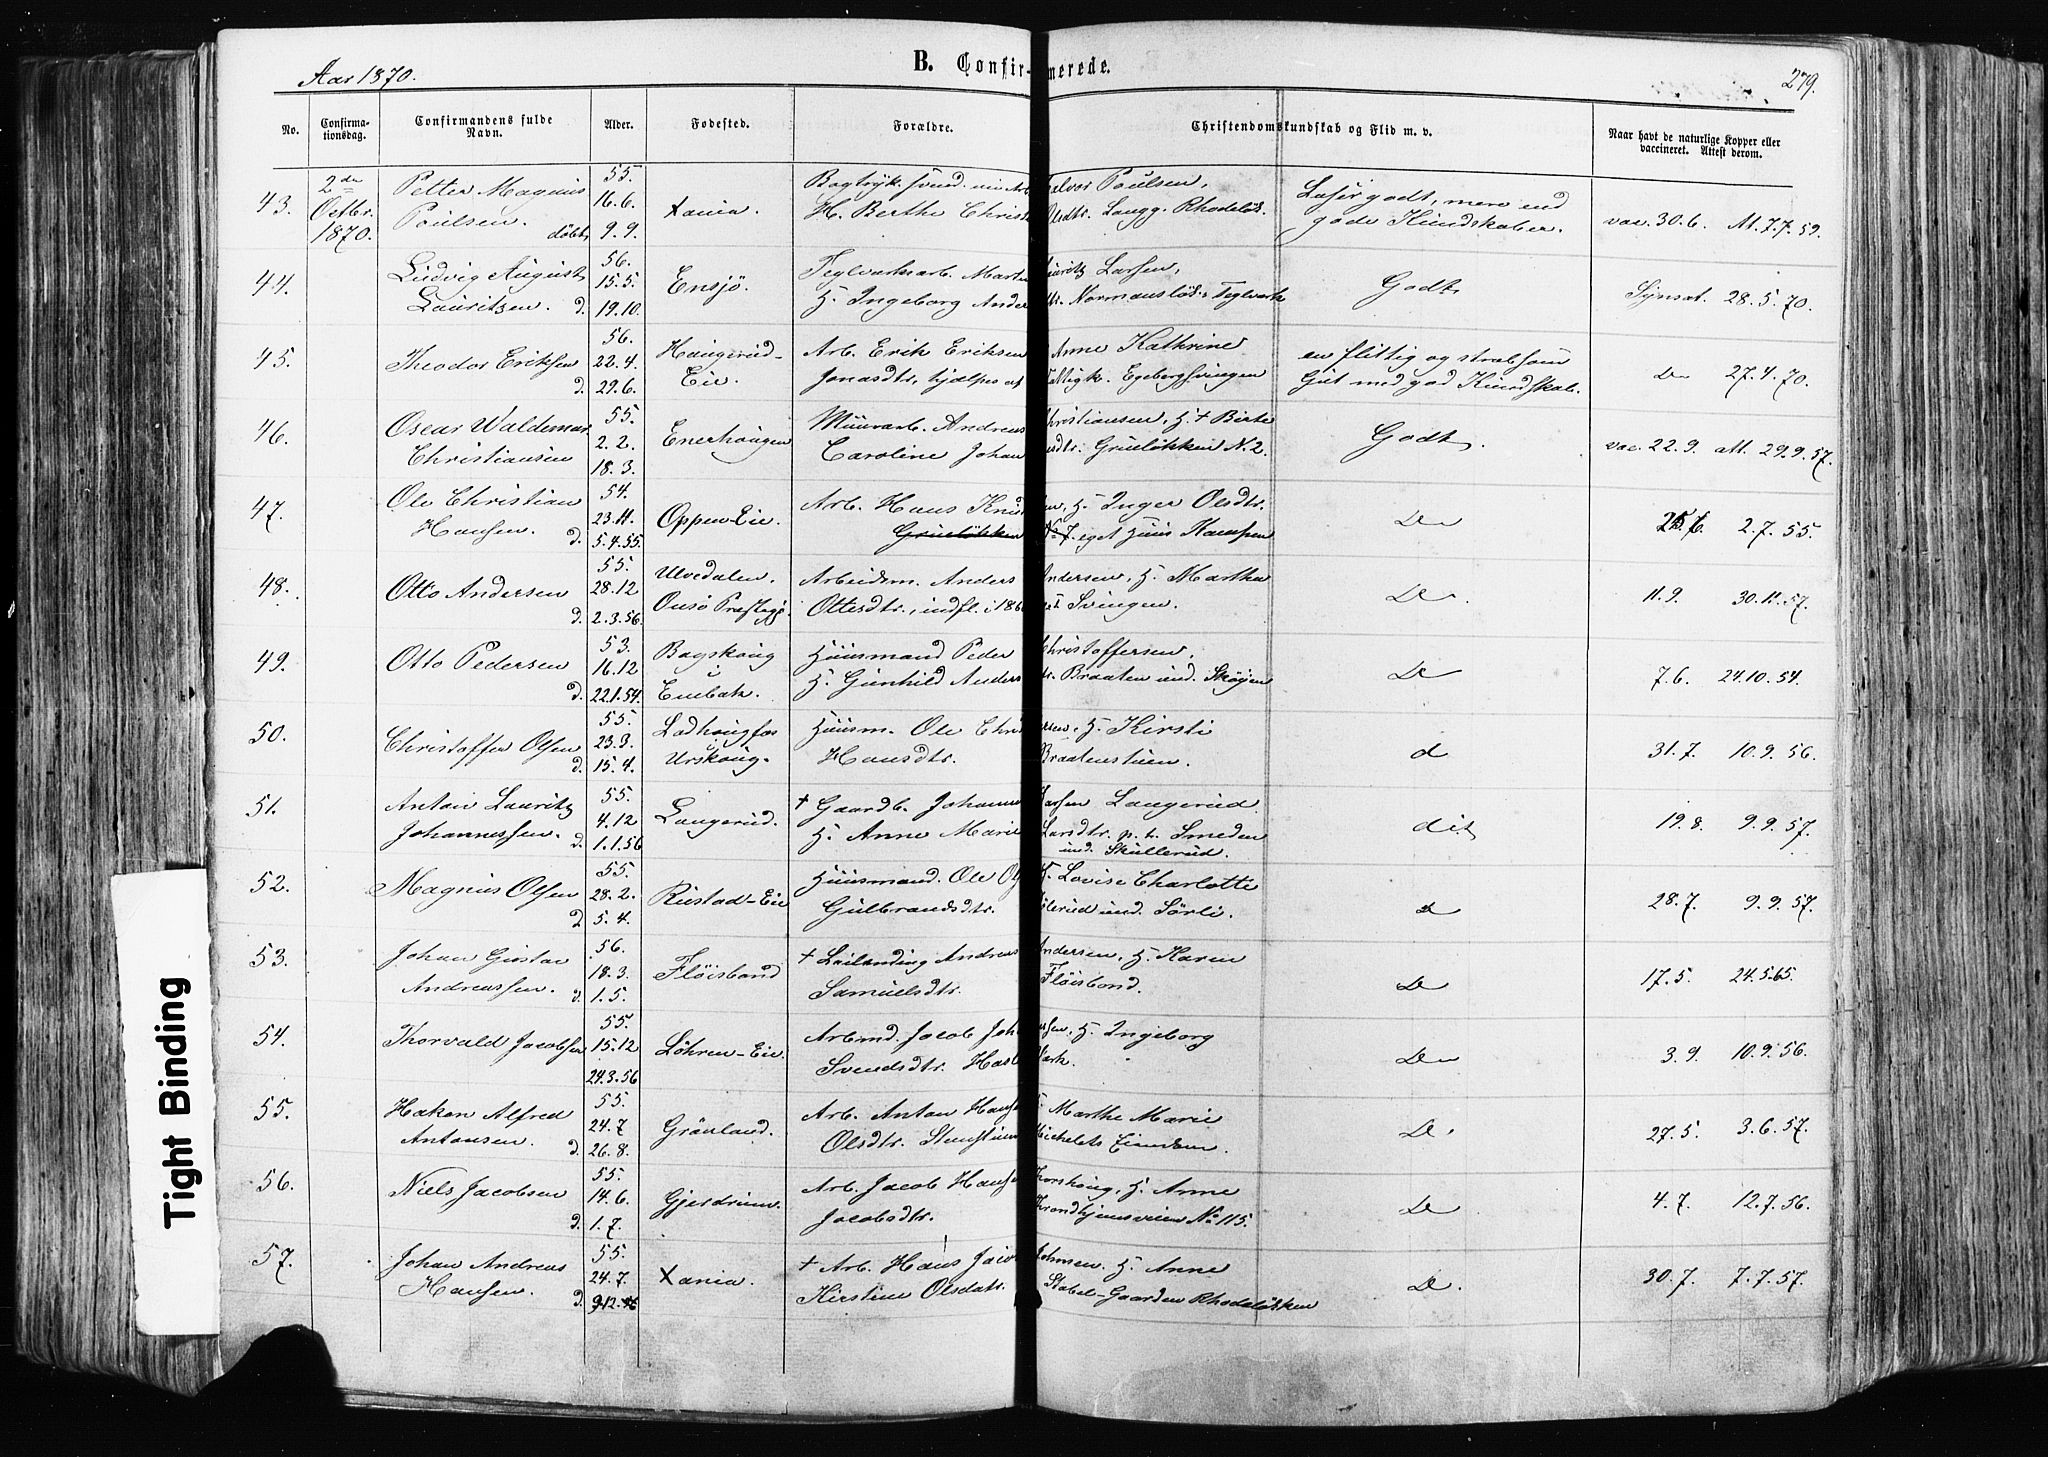 Aar 1870.
B. Confirmerede.
279.
No.
Confirma-
tionsdag.
Confirmandens fulde
Navn.
Alder.
Fødested.
Forældre.
Christendomskundskab og Flid m. v.
Naar havt de naturlige Kopper eller
vaccineret. Attest derom.
43.
2den
Octbr.
1870.
Petter Magnus
Poulsen. døbt
55.
16.6.
9.9.
Xania.
Halvor Poulsen,
H. Berthe Christ Olsdtr. Langg. Rhodeløk.
Læser godt, mere end
gode Kundskaber.
vac. 30.6. At. 7.7.59.
44.
Ludvig August
Lauritsen. d.
56.
15.5.
19.10.
Ensjö.
Teglværksarb. Martin Lauritz Larsen,
H. Ingeborg Anders dtr. Normansløk. Teglværk
Godt
28.5.70.
45.
Theodor Eriksen
d.
56.
22.4.
29.6.
Haugerud-
Eie.
Arb. Erik Eriksen Anne Kathrine
Jonasdtr., hjælpes af Fattigk. Egebergsvingen
en flittig og stræbsom
Gut med god Kundskab.
De 27.4.70.
46.
Oscar Waldemar
Christiansen
55.
2.2.
18.3.
Enerhaugen
Muurarb. Andreas Christiansen, H. + Birte
Caroline Johan sdtr. Grueløkken N. 2.
Godt.
vac. 22.9. att. 29.9.57.
47.
Ole Christian
Hansen. d.
54.
23.11.
5.4.55.
Oppen-Eie.
Arb. Hans Knudsen, H. Inger Olsdtr.
Grueløkken No 7. eget Huus Kampen
De
2.7.55.
48.
Otto Andersen
d.
55.
28.12
2.3.56.
Ulvedalen.
Onsø Præstegj.
Arbeidsm. Anders Andersen, H. Marthe
Ottersdtr., indfl. i 186 Svingen.
De.
11.9. 30.11.57.
49.
Otto Pedersen
d.
53.
16.12
22.1.54.
Bogskoug
i
Enebak.
Huusmand Peder Christoffersen,
H. Gunhild Andersdtr. Braaten und. Skøyen
De
7.6. 24.10.54.
50.
Christoffer Olsen
d.
55.
23.3.
15.4.
i
Urskoug.
Huusm. Ole Christ ersen, H. Kirsti
Hansdtr. Braatenstuen.
d
31.7. 10.9.56.
51.
Anton Lauritz
Johannessen. d.
55.
4.12
1.1.56
Langerud.
+ Gaardb. Johannes Larsen Langerud
H. Anne Marie Larsdtr. p. t. Smeden
und. Skullerud.
dit
19.8. 9.9.57.
52.
Magnus Olsen
d
55.
28.2.
5.4.
Rustad-Eie
Huusmand. Ole Ols H. Lovise Charlotte
Gulbrandsdtr. und. Sörli.
d
28.7. 9.9.57.
53.
Johan Gustav
Andreassen. d.
56.
18.3.
1.5.
Flöisbond
+ Leilending Andreas Andersen, H. Karen
Samuelsdtr. Flöisbond.
De
17.5. 24.5.65.
54.
Thorvald Jacobsen
55.
15.12
24.3.56
Löhren-Eie.
Arbmd. Jacob Joh sen, H. Ingeborg
Svendsdtr. Hasl Værk.
De
3.9. 10.9.56.
55.
Hakon Alfred
Antonsen. d.
55.
24.7
26.8.
Grönland.
Arb. Anton Hansen Marthe Marie
Olsdtr. Michelets Eiendom.
De.
27.5. 3.6.57.
56.
Niels Jacobsen
d.
55.
14.6.
1.7.
Gjerdrum.
Arb. Jacob Hansen Korshoug, H. Anne
Jacobsdtr. Trondhjemsveien No 115.
De
4.7. 12.7.56.
57.
Johan Andreas
Hansen. d.
55.
24.7.
9.12.
Xania.
+ Arb. Hans Jacob Johnsen. H. Anne
Kirstine Olsdatr. Stabel-Gaarden Rhodeløkken
De.
30.7. 7.7.57.
Tight Binding